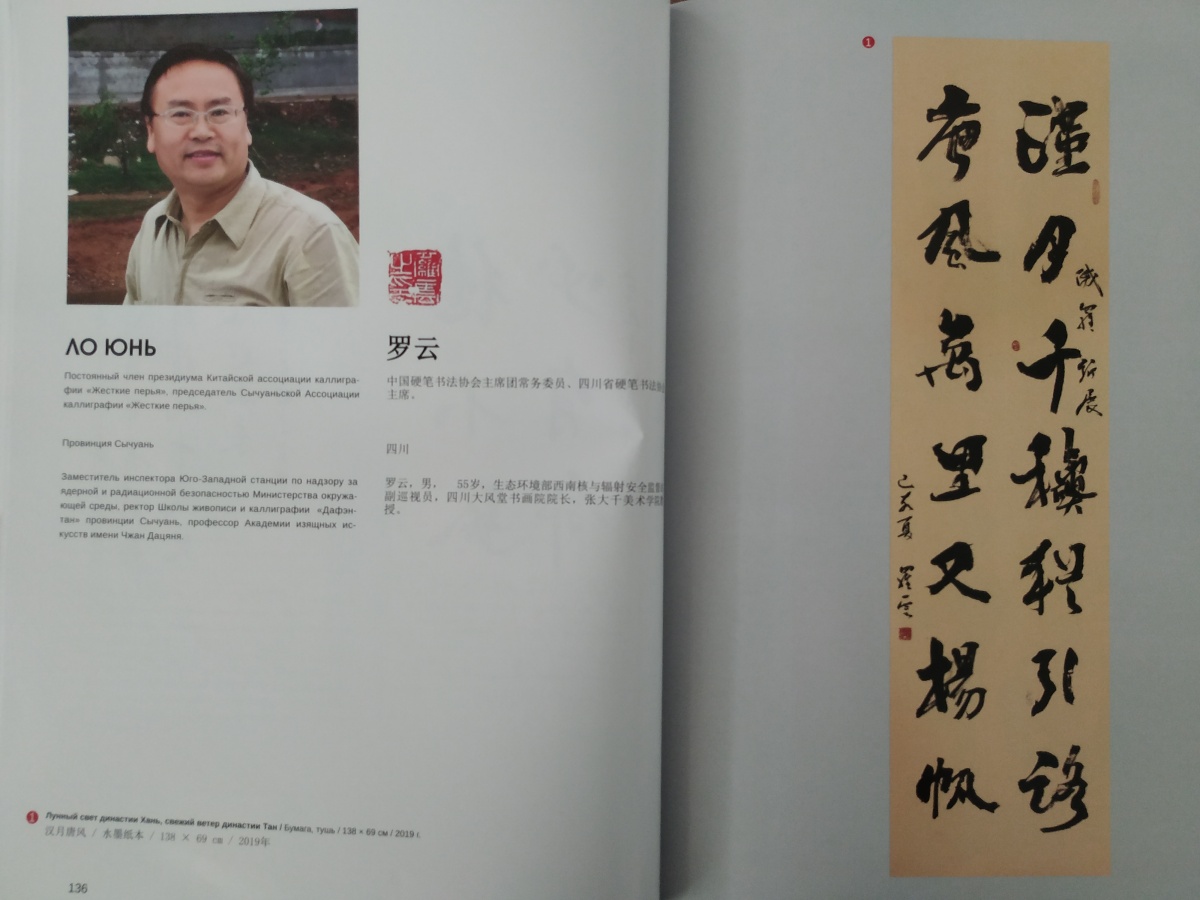 ЛО ЮНЬ
Постоянный член президиума Китайской ассоциации каллигра-
фии «Жесткие перья», председатель Сычуаньской Ассоциации
каллиграфии «Жесткие перья».
Провинция Сычуань
Заместитель инспектора Юго-Западной станции по надзору за
ядерной и радиационной безопасностью Министерства окружа-
ющей среды, ректор Школы живописи и каллиграфии «Дафэн-
тан» провинции Сычуань, профессор Академии изящных ис-
кусств имени Чжан Дацяня.
罗云
中国硬笔书法协会主席团常务委员、四川省硬笔书法
主席。
四川
罗云，男， 55岁，生态环境部西南核与辐射安全监督
副巡视员，四川大风堂书画院院长，张大千美术学院
授。
1 Лунный свет династии Хань, свежий ветер династии Тан / Бумага, тушь / 138 × 69 см / 2019 г.
汉月唐风 / 水墨纸本 / 138 × 69 cm / 2019年
136
1
漢月千穐猶引路
唐風萬里又揚帆
己亥夏 羅雲